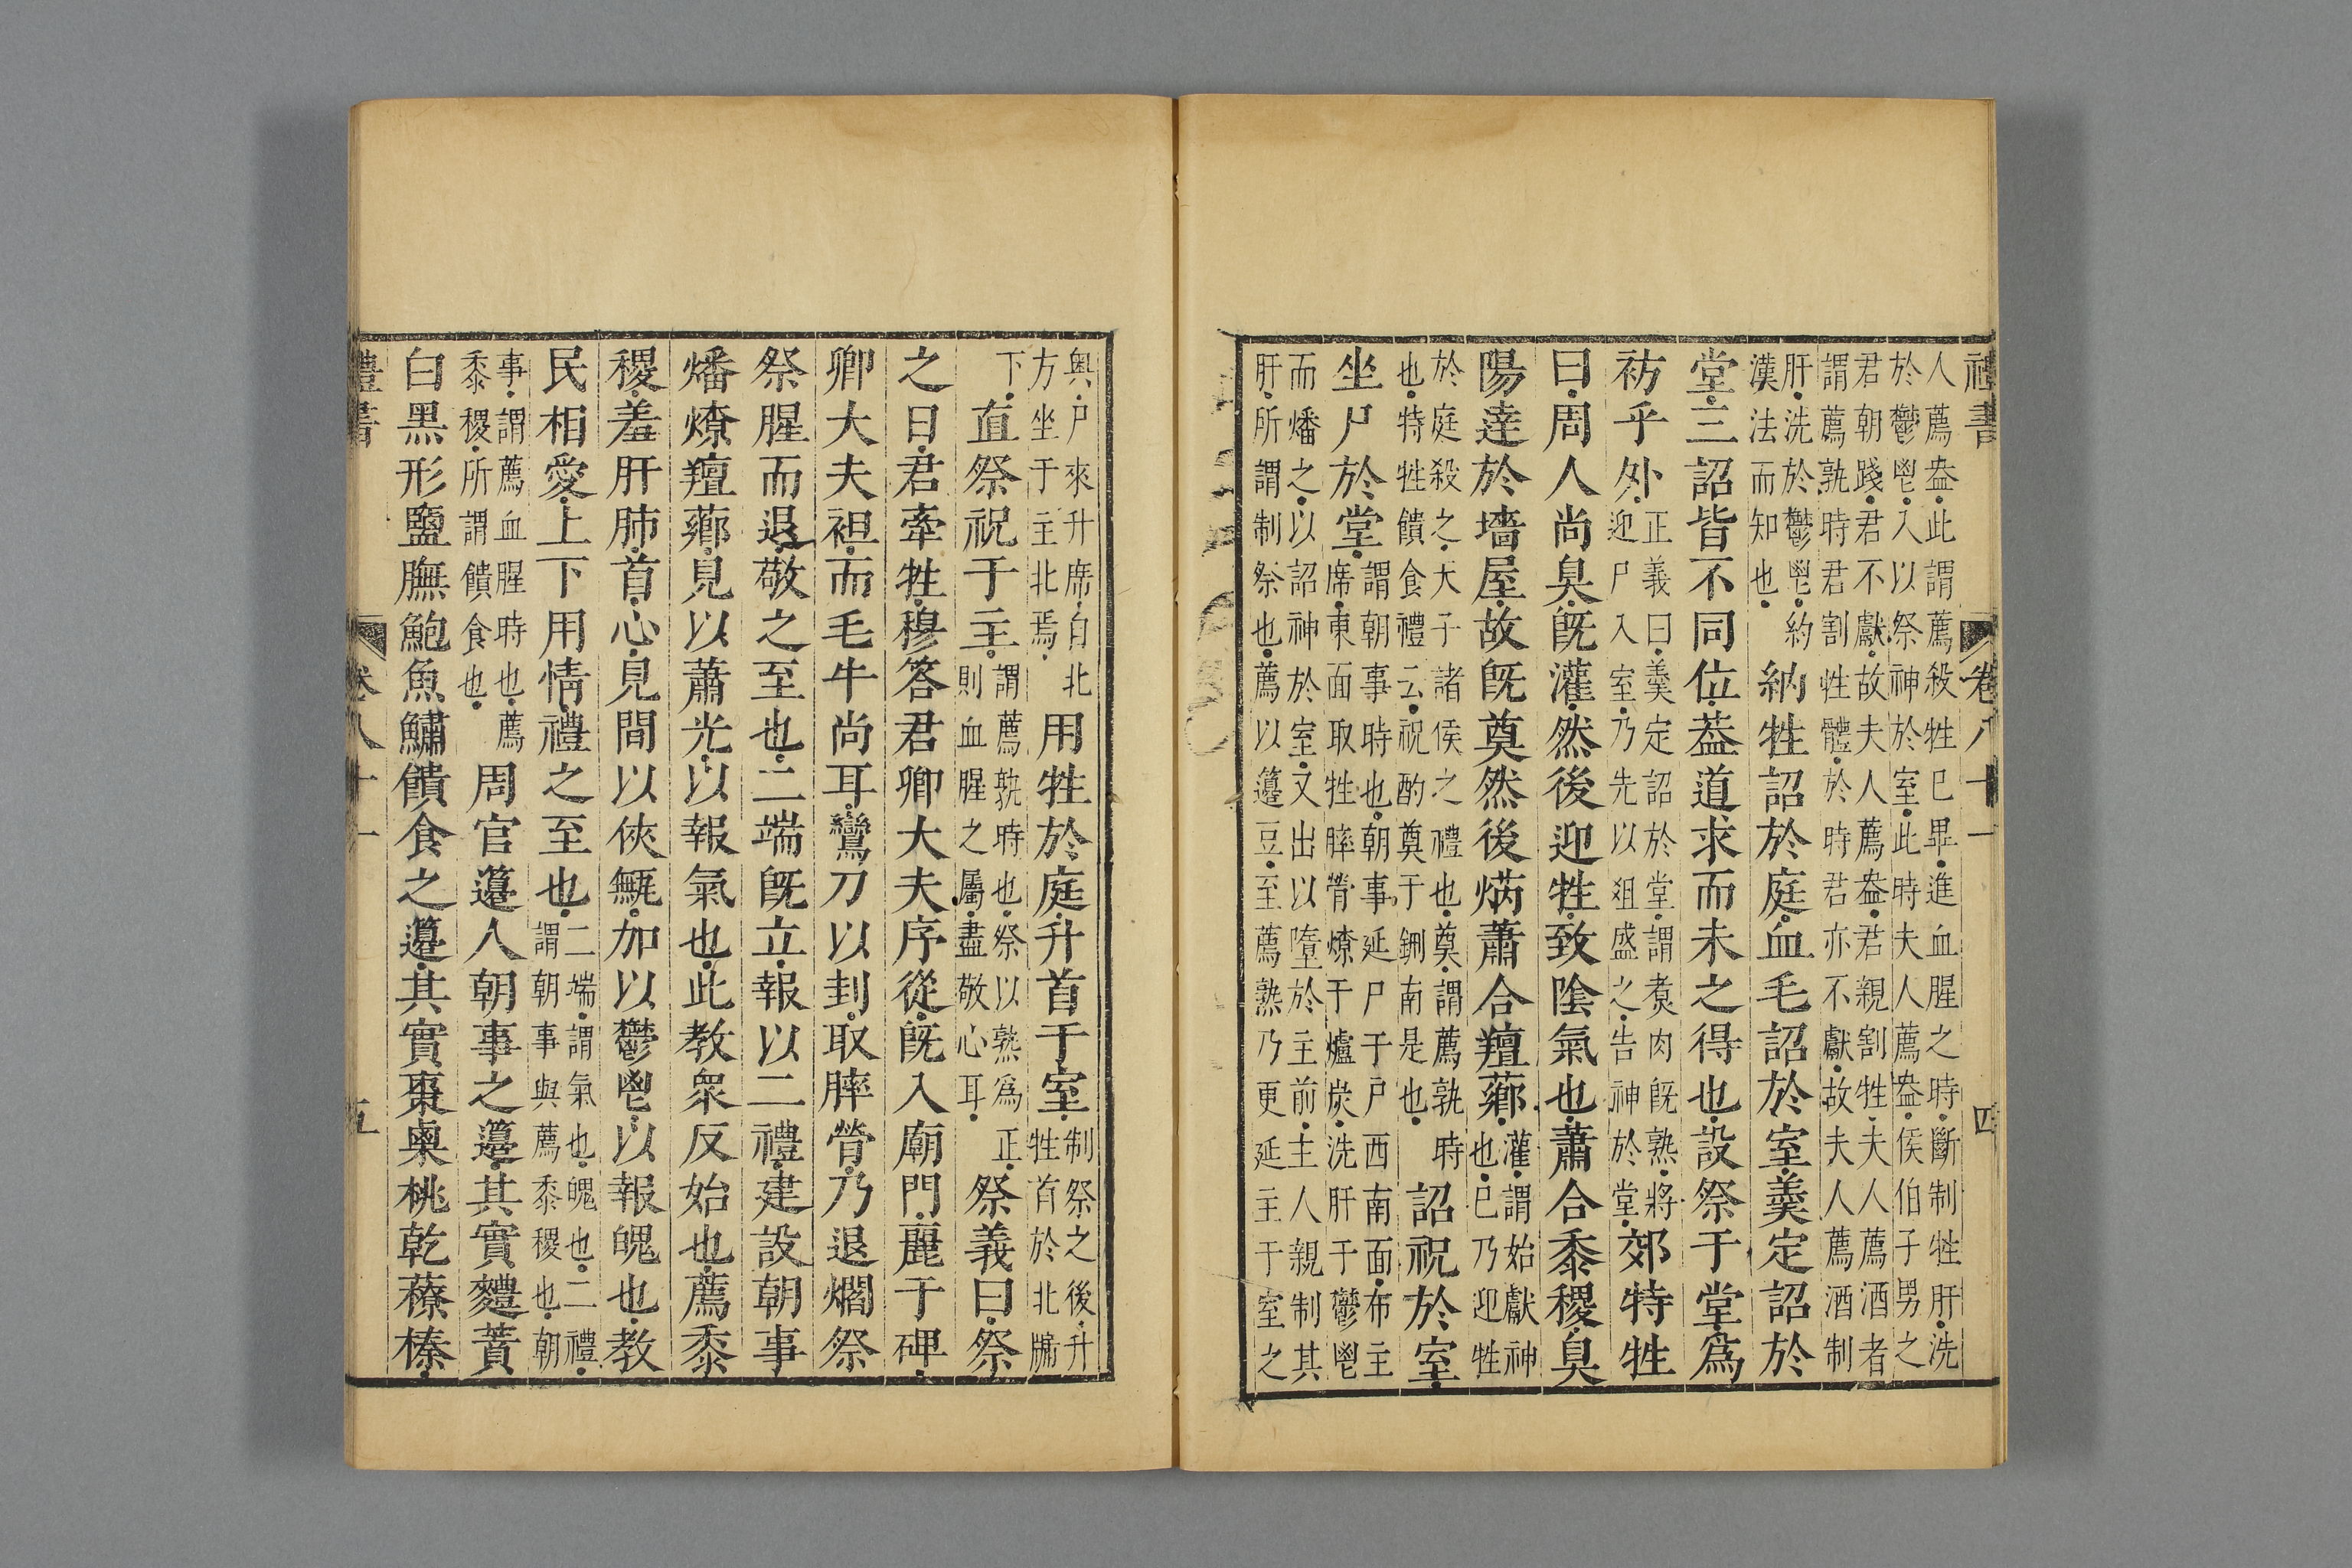 禮書 卷八十一 四
人薦盎此謂薦殺牲已畢進血腥之時斷制牲肝洗
於鬱鬯入以祭神於室此時夫人薦盎侯伯子男之
君朝踐君不獻故夫人薦盎君親割牲夫人薦酒者
謂薦孰時君割牲體於時君亦不獻故夫人薦酒制
肝洗於鬱鬯約
漢法而知也
納牲詔於庭血毛詔於室羹定詔於
堂三詔皆不同位葢道求而未之得也設祭于堂爲
祊乎外
正義曰羹定詔於堂謂煑肉旣熟將
迎尸入室乃先以俎盛之告神於堂
郊特牲
曰周人尚臭旣灌然後迎牲致陰氣也蕭合黍稷臭
陽達於墻屋故旣奠然後焫蕭合羶薌
灌謂始獻神
也已乃迎牲
於庭殺之天子諸侯之禮也奠謂薦孰時
也特牲饋食禮云祝酌奠于鉶南是也
詔祝於室
坐尸於堂
謂朝事時也朝事延尸于戶西南面布主
席東面取牲膟膋燎于爐炭洗肝于鬱鬯
而燔之以詔神於室又出以墮於主前主人親制其
肝所謂制祭也薦以籩豆至薦熟乃更延主于室之
奧尸來升席自北
方坐于主北焉
用牲於庭升首于室
制祭之後升
牲首於北牖
下
直祭祝于主
謂薦孰時也祭以熟爲正
則血腥之屬盡敬心耳
祭義曰祭
之日君牽牲穆答君卿大夫序從旣入廟門麗于碑
卿大夫袒而毛牛尚耳鸞刀以刲取膟膋乃退爓祭
祭腥而退敬之至也二端旣立報以二禮建設朝事
燔燎羶薌見以蕭光以報氣也此教衆反始也薦黍
稷羞肝肺首心見間以俠甒加以鬱鬯以報魄也教
民相愛上下用情禮之至也
二端謂氣也魄也二禮
謂朝事與薦黍稷也朝
事謂薦血腥時也薦
黍稷所謂饋食也
周官籩人朝事之籩其實麷蕡
白黑形鹽膴鮑魚鱐饋食之籩其實棗㮚桃乾䕩榛
禮書 卷八十一 五